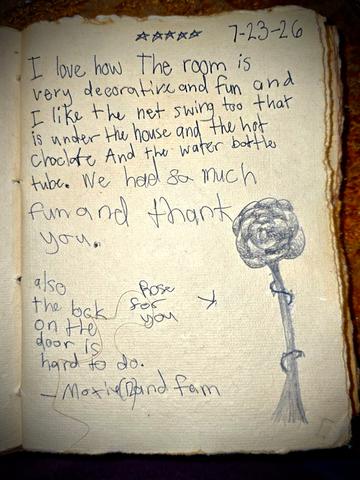 ☆☆☆☆☆ 7-23-26
I love how The room is
very decorative and fun and
I like the net swing too that
is under the house and the hot
choclate And the water bottle
tube. We had so much
fun and thank
you.
also
the lock
on the
door is
hard to do.
Rose
for
you
- Moxie and fam